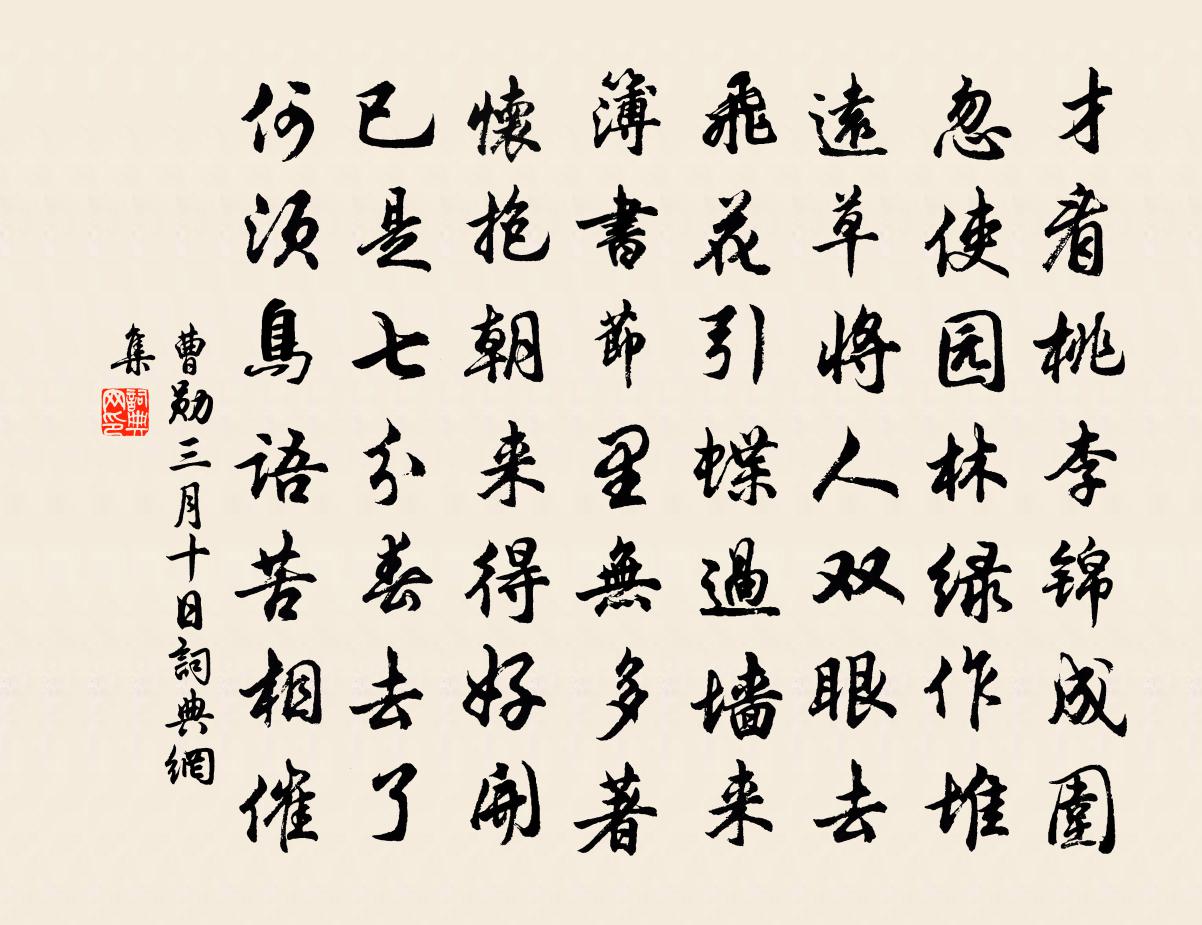 才看桃李锦成圍
忽使园林緑作堆
遠草將人双眼去
飛花引蝶過墙来
簿書節里無多著
懷抱朝来得好開
已是七分春去了
何須鳥語苦相催
曹勛三月十日詞典網
集
詞典网印